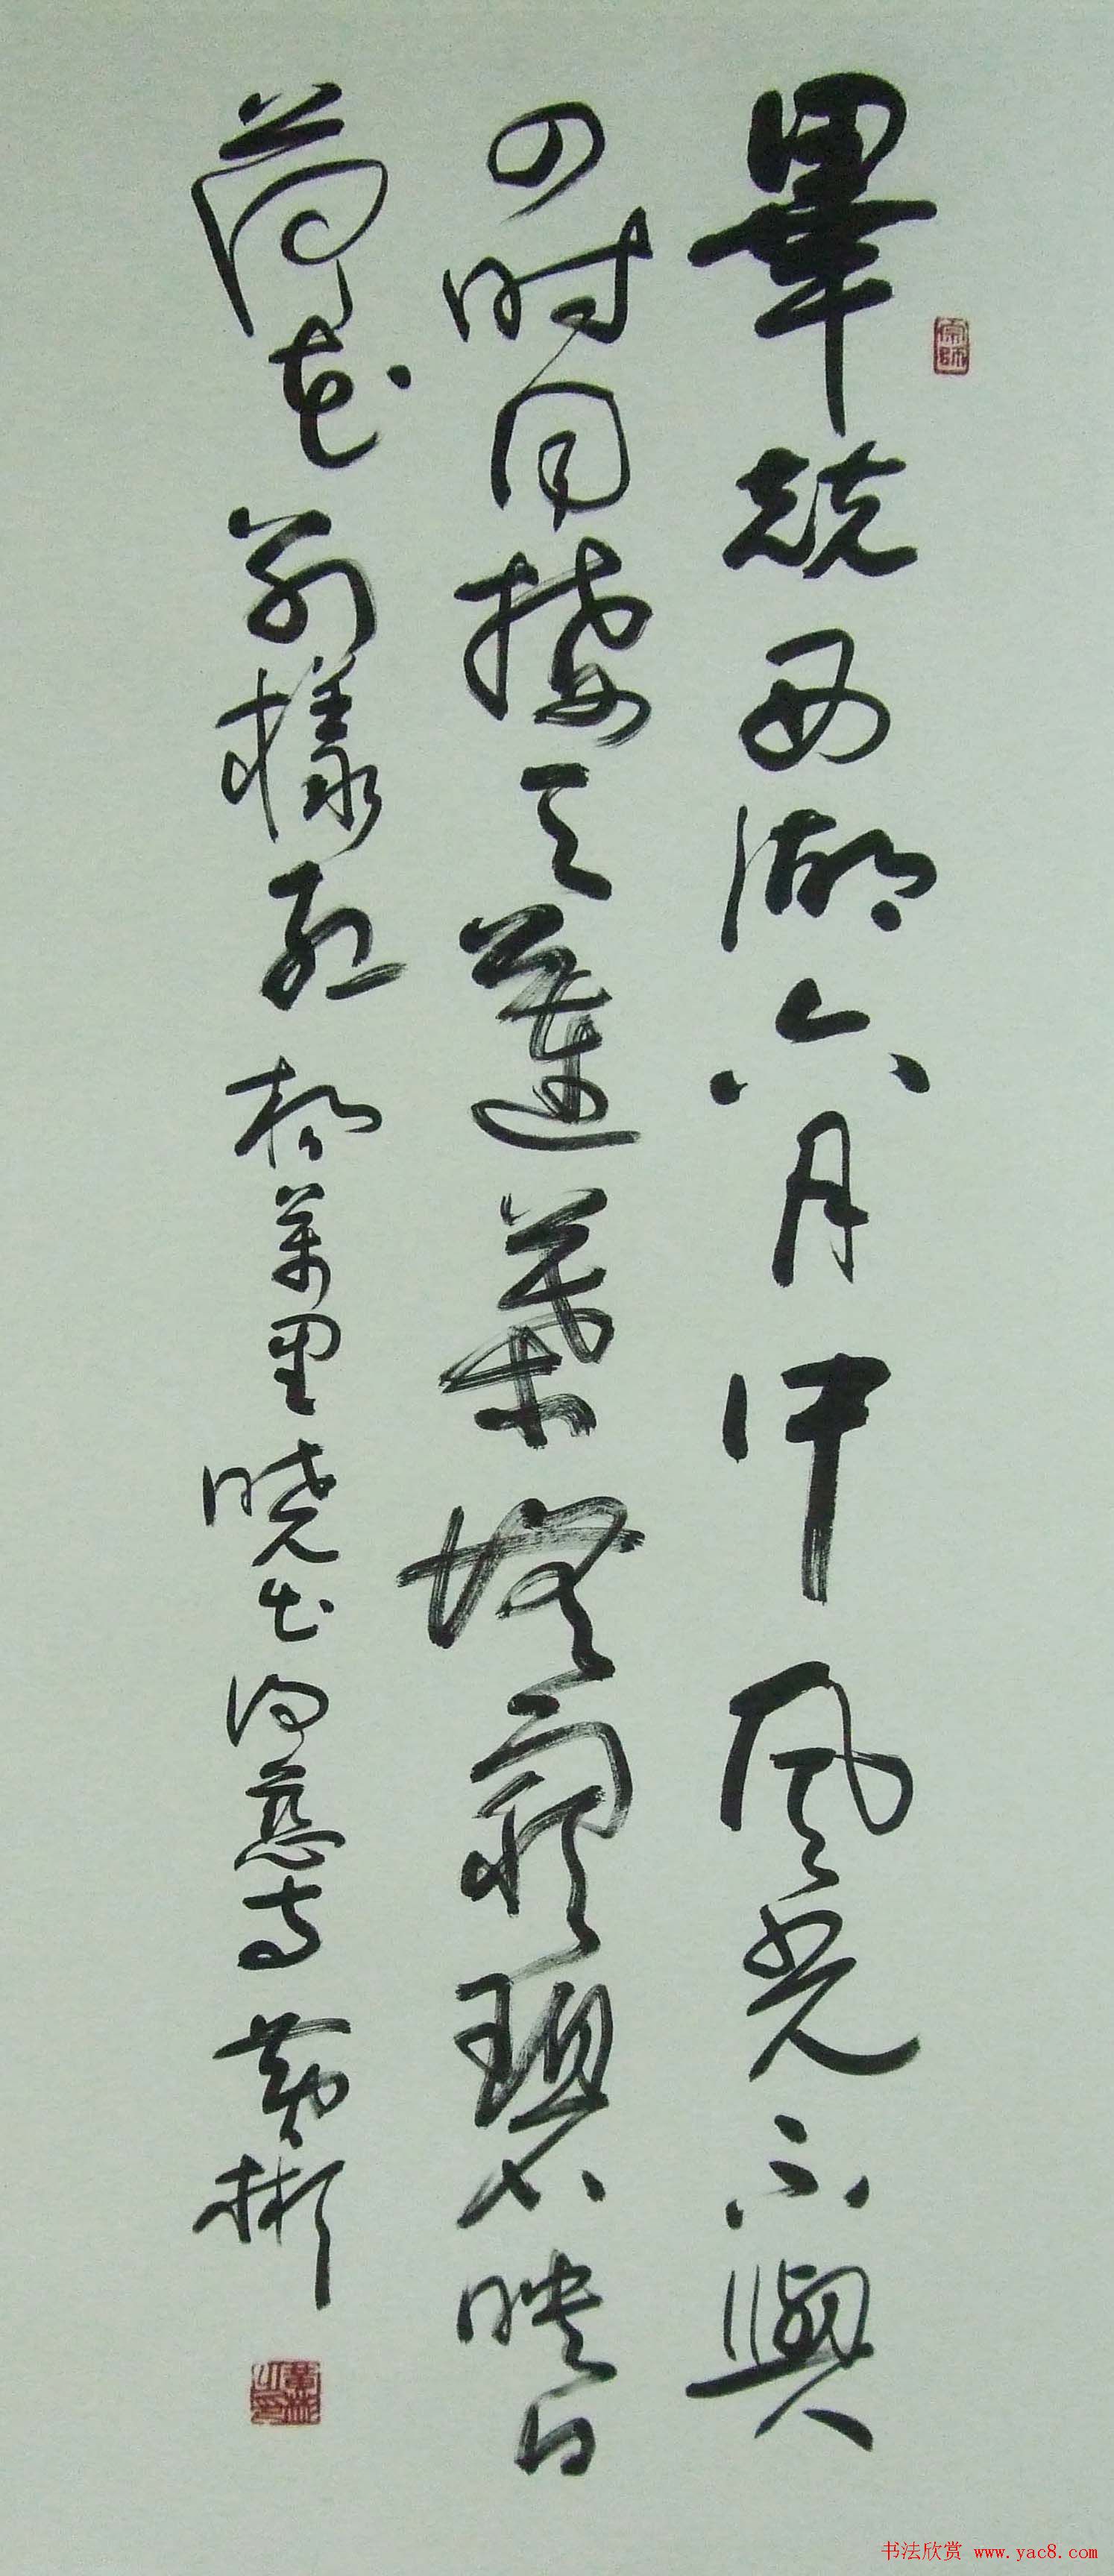 畢競西湖六月中風光不與
四時同接天蓮葉無窮碧映日
荷花别樣紅楊萬里曉出淨慈寺黄彬
崇師
黄彬之印
书法欣赏 www.yac8.com